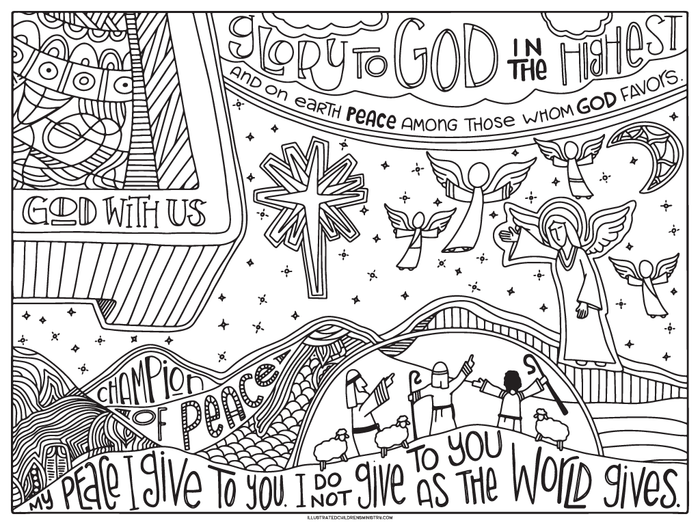 GLORY TO GOD IN THE HIGHEST
AND ON EARTH PEACE AMONG THOSE WHOM GOD FAVORS.
GOD WITH US
CHAMPION
OF PEACE
MY PEACE I GIVE TO YOU. I DO NOT GIVE TO YOU AS THE WORLD GIVES.
ILLUSTRATEDCHILDRENSMINISTRY.COM